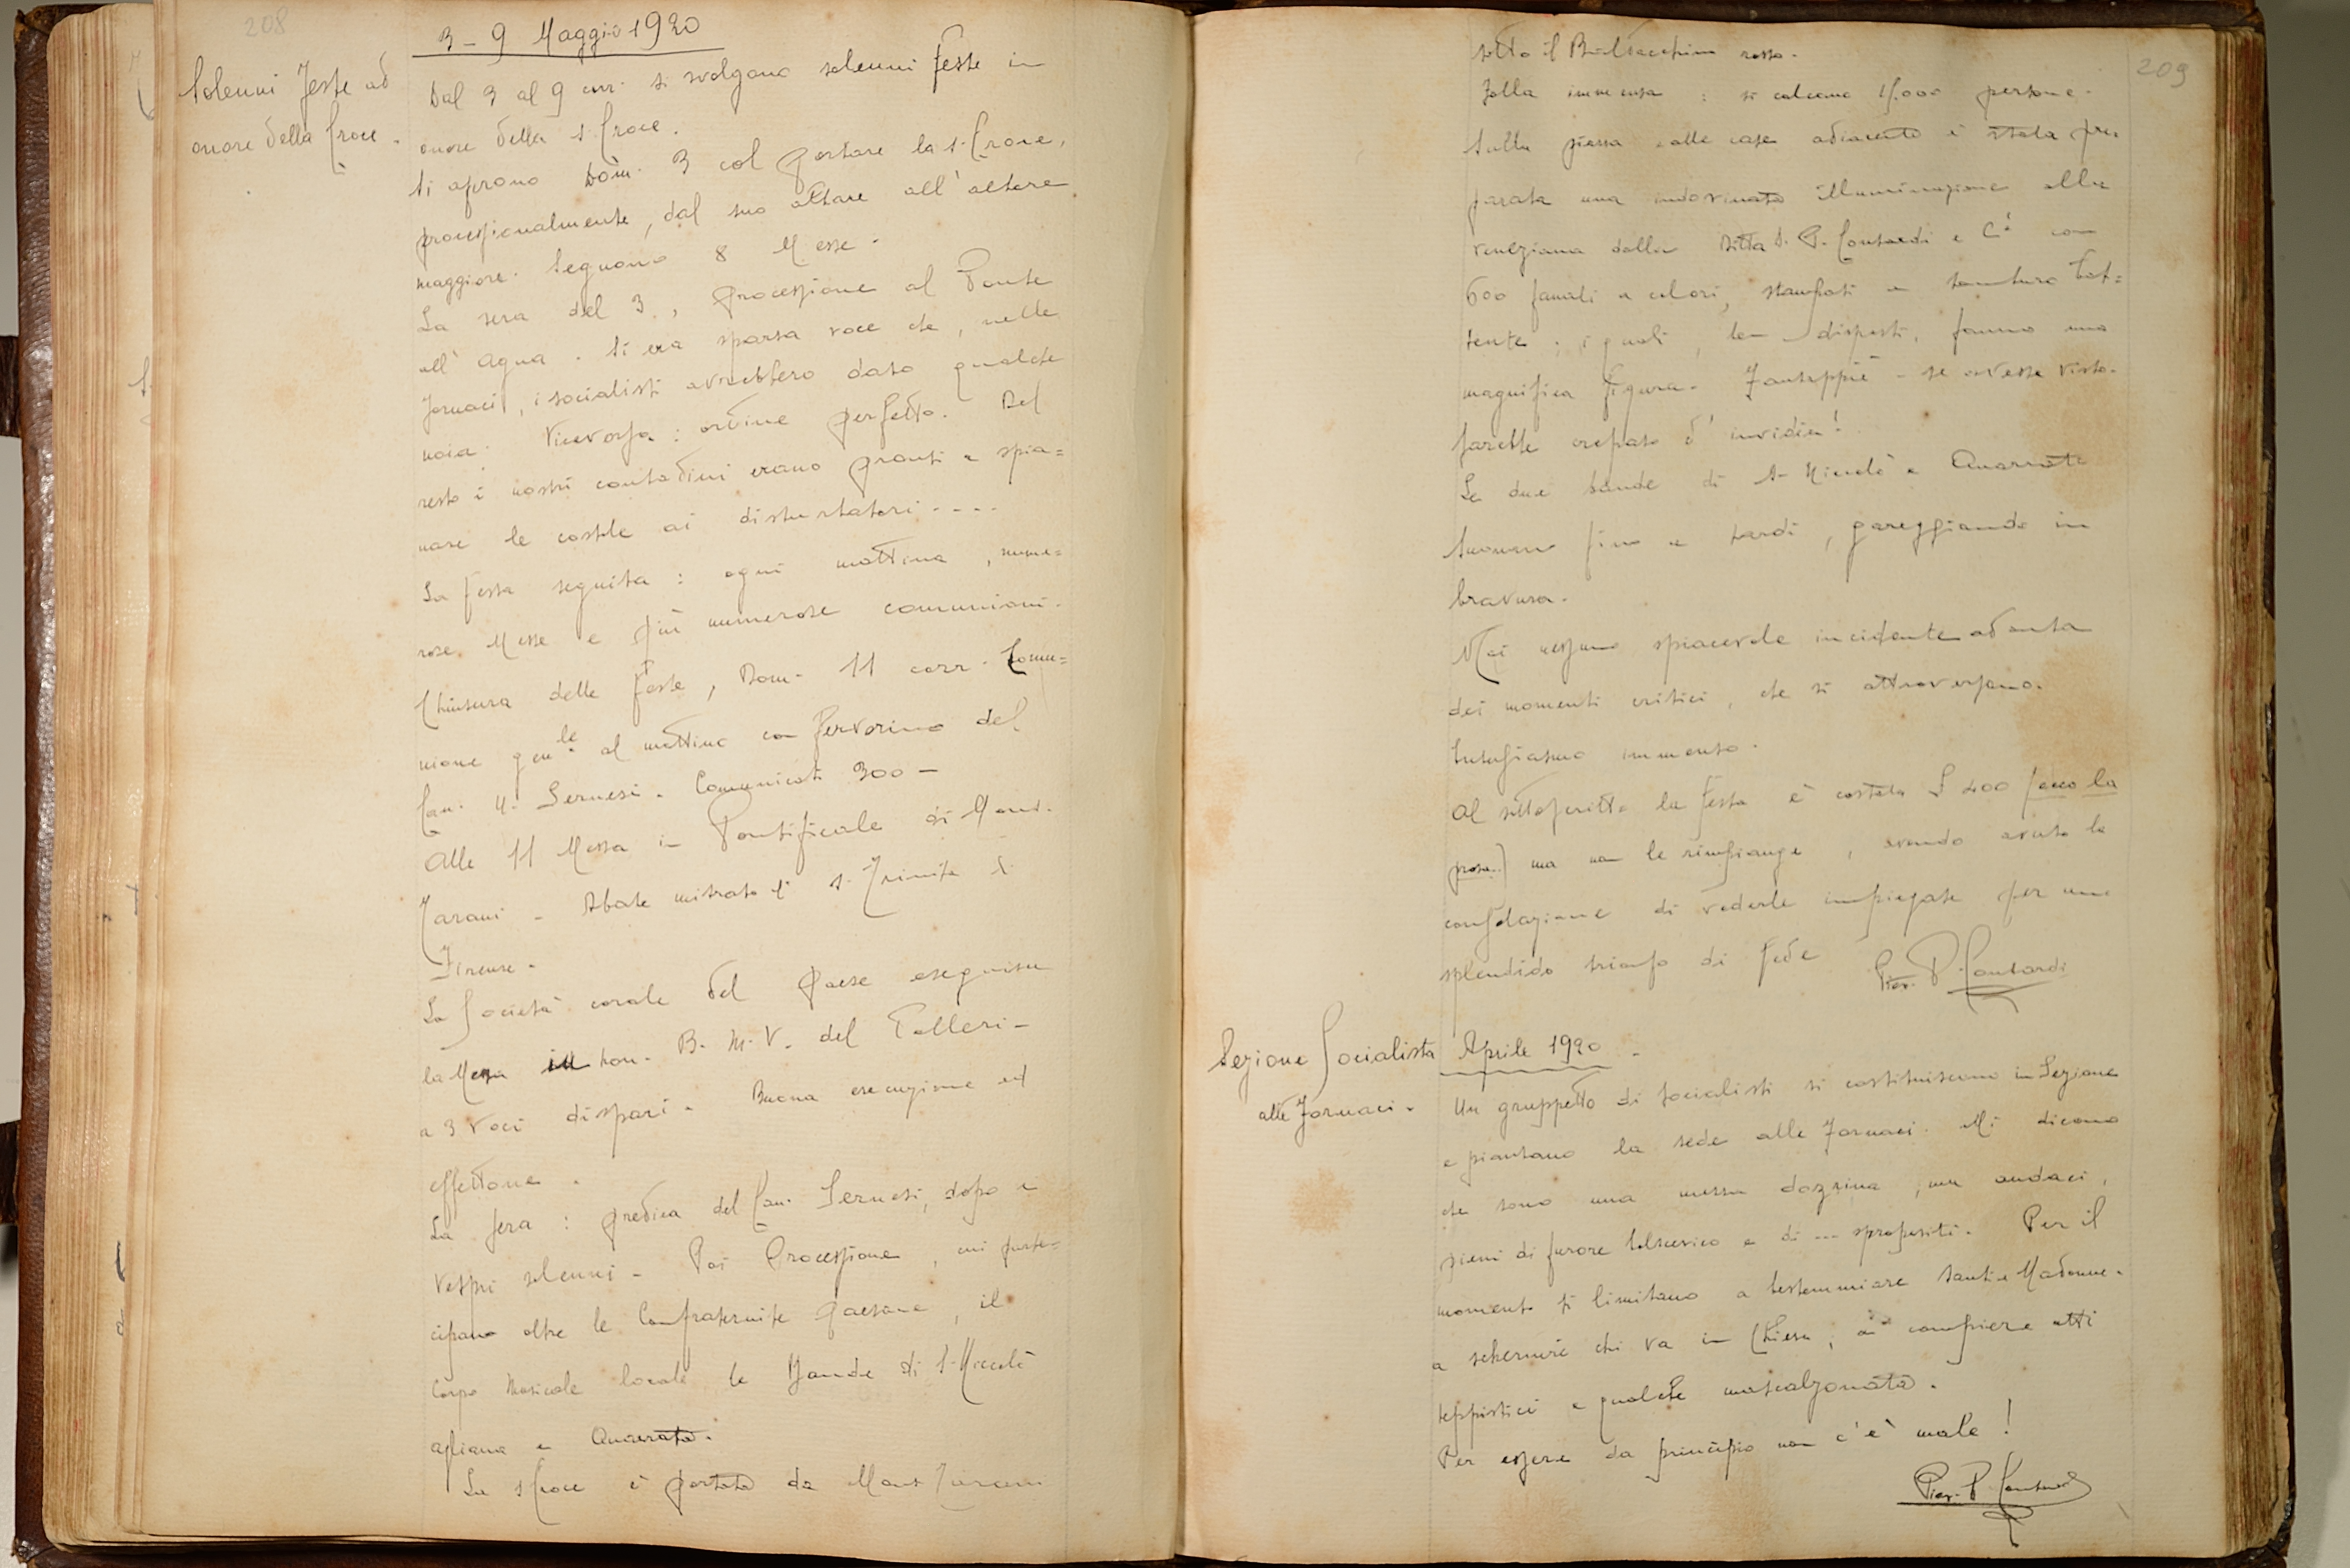 208
3 - 9 Maggio 1920
Solenni Feste ad
onore della Croce.
Dal 3 al 9 corr. si svolgono solenni feste in
onore della S. Croce.
Si aprono Dom. 3 col portare la S. Croce,
processionalmente, dal suo altare all'altare
maggiore. Seguono 8 Messe.
La sera del 3, processione al Ponte
all'Agna. Si era sparsa voce che, nelle
Fornaci, i socialisti avrebbero dato qualche
noia. Viceversa: ordine perfetto. Del
resto i nostri contadini erano pronti a spia=
nare le costole ai disturbatori....
La festa seguita: ogni mattina, nume=
rose Messe e più numerose comunioni.
Chiusura delle feste, Dom. 11 corr. Comu=
nione gen.le al mattino con fervorino del
Can. U. Sernesi. Comunicati 300 -
Alle 11 Messa in Pontificale di Mons.
Tarani - Abate mitrato di S. Trinita di
Firenze.
La Società corale del paese eseguisce
la Messa in hon. B. M. V. del Talleri -
a 3 voci dispari. Buona esecuzione ed
effettone.
La sera: predica del Can. Sernesi, dopo i
Vespri solenni - Poi Processione, cui parte=
cipano oltre le Confraternite paesane, il
Corpo Musicale locale le Bande di S. Niccolò
Agliana e Quarrata.
La S. Croce è portata da Mons. Tarani
209
sotto il Baldacchino rosso.
Folla immensa: si calcano 15.000 persone.
Sulla piazza e alle case adiacenti è stata pre
parata una indovinata illuminazione alla
veneziana dalla Ditta S. P. Contardi e C.i con
600 fanali a colori, stampati a tamburo bat=
tente; i quali, ben disposti, fanno una
magnifica figura. Fantappiè - se avesse visto -
sarebbe crepato d'invidia!
Le due bande di S. Niccolò e Quarrata
suonano fino a tardi, gareggiando in
bravura.
Mai nessuno spiacevole incidente ad onta
dei momenti critici, che si attraversano.
Entusiasmo immenso.
Al sottoscritto la festa è costata £ 400 (ecco la
prosa..) ma non le rimpiange, avendo avuto la
consolazione di vederle impiegate per uno
splendido trionfo di fede
Piev. P. Contardi
Sezione Socialista
alle Fornaci.
Aprile 1920 -
Un gruppetto di socialisti si costituiscono in Sezione
e piantano la sede alle Fornaci. Mi dicono
che sono una mezza dozzina, ma audaci,
pieni di furore bolscevico e di ... spropositi. Per il
momento si limitano a bestemmiare Santi e Madonne.
a schernire chi va in Chiesa, a compiere atti
teppistici e qualche mascalzonata.
Per essere da principio non c'è male!
Piev. P. Contardi